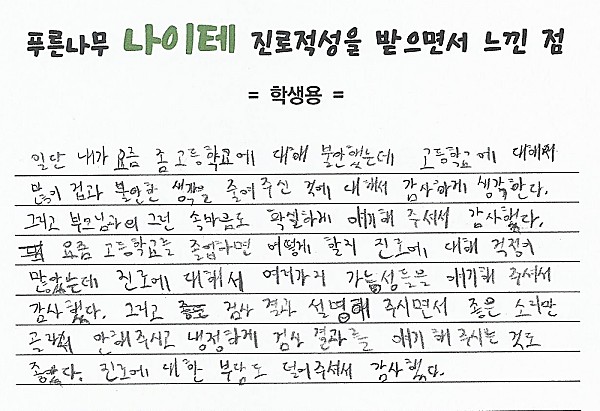 푸른나무 나이테 진로적성을 받으면서 느낀 점
= 학생용 =
일단 내가 요즘 좀 고등학교에 대해 불안했는데 고등학교에 대해서
많이 겁과 불안한 생각을 줄여주신 것에 대해서 감사하게 생각한다.
그리고 부모님과의 그런 속마음도 확실하게 얘기해 주셔서 감사했다.
요즘 고등학교를 졸업하면 어떻게 할지 진로에 대해 걱정이
많았는데 진로에 대해서 여러가지 가능성들을 얘기해 주셔서
감사했다. 그리고 검사 결과 설명해 주시면서 좋은 소리만
골라서 안해주시고 냉정하게 검사 결과를 얘기 해 주시는 것도
좋았다. 진로에 대한 부담도 덜어주셔서 감사했다.